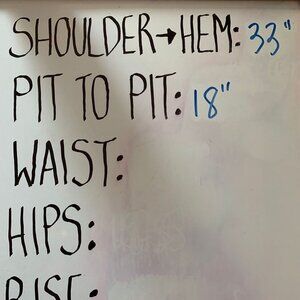 SHOULDER→HEM: 33"
PIT TO PIT: 18"
WAIST:
HIPS:
RISE: